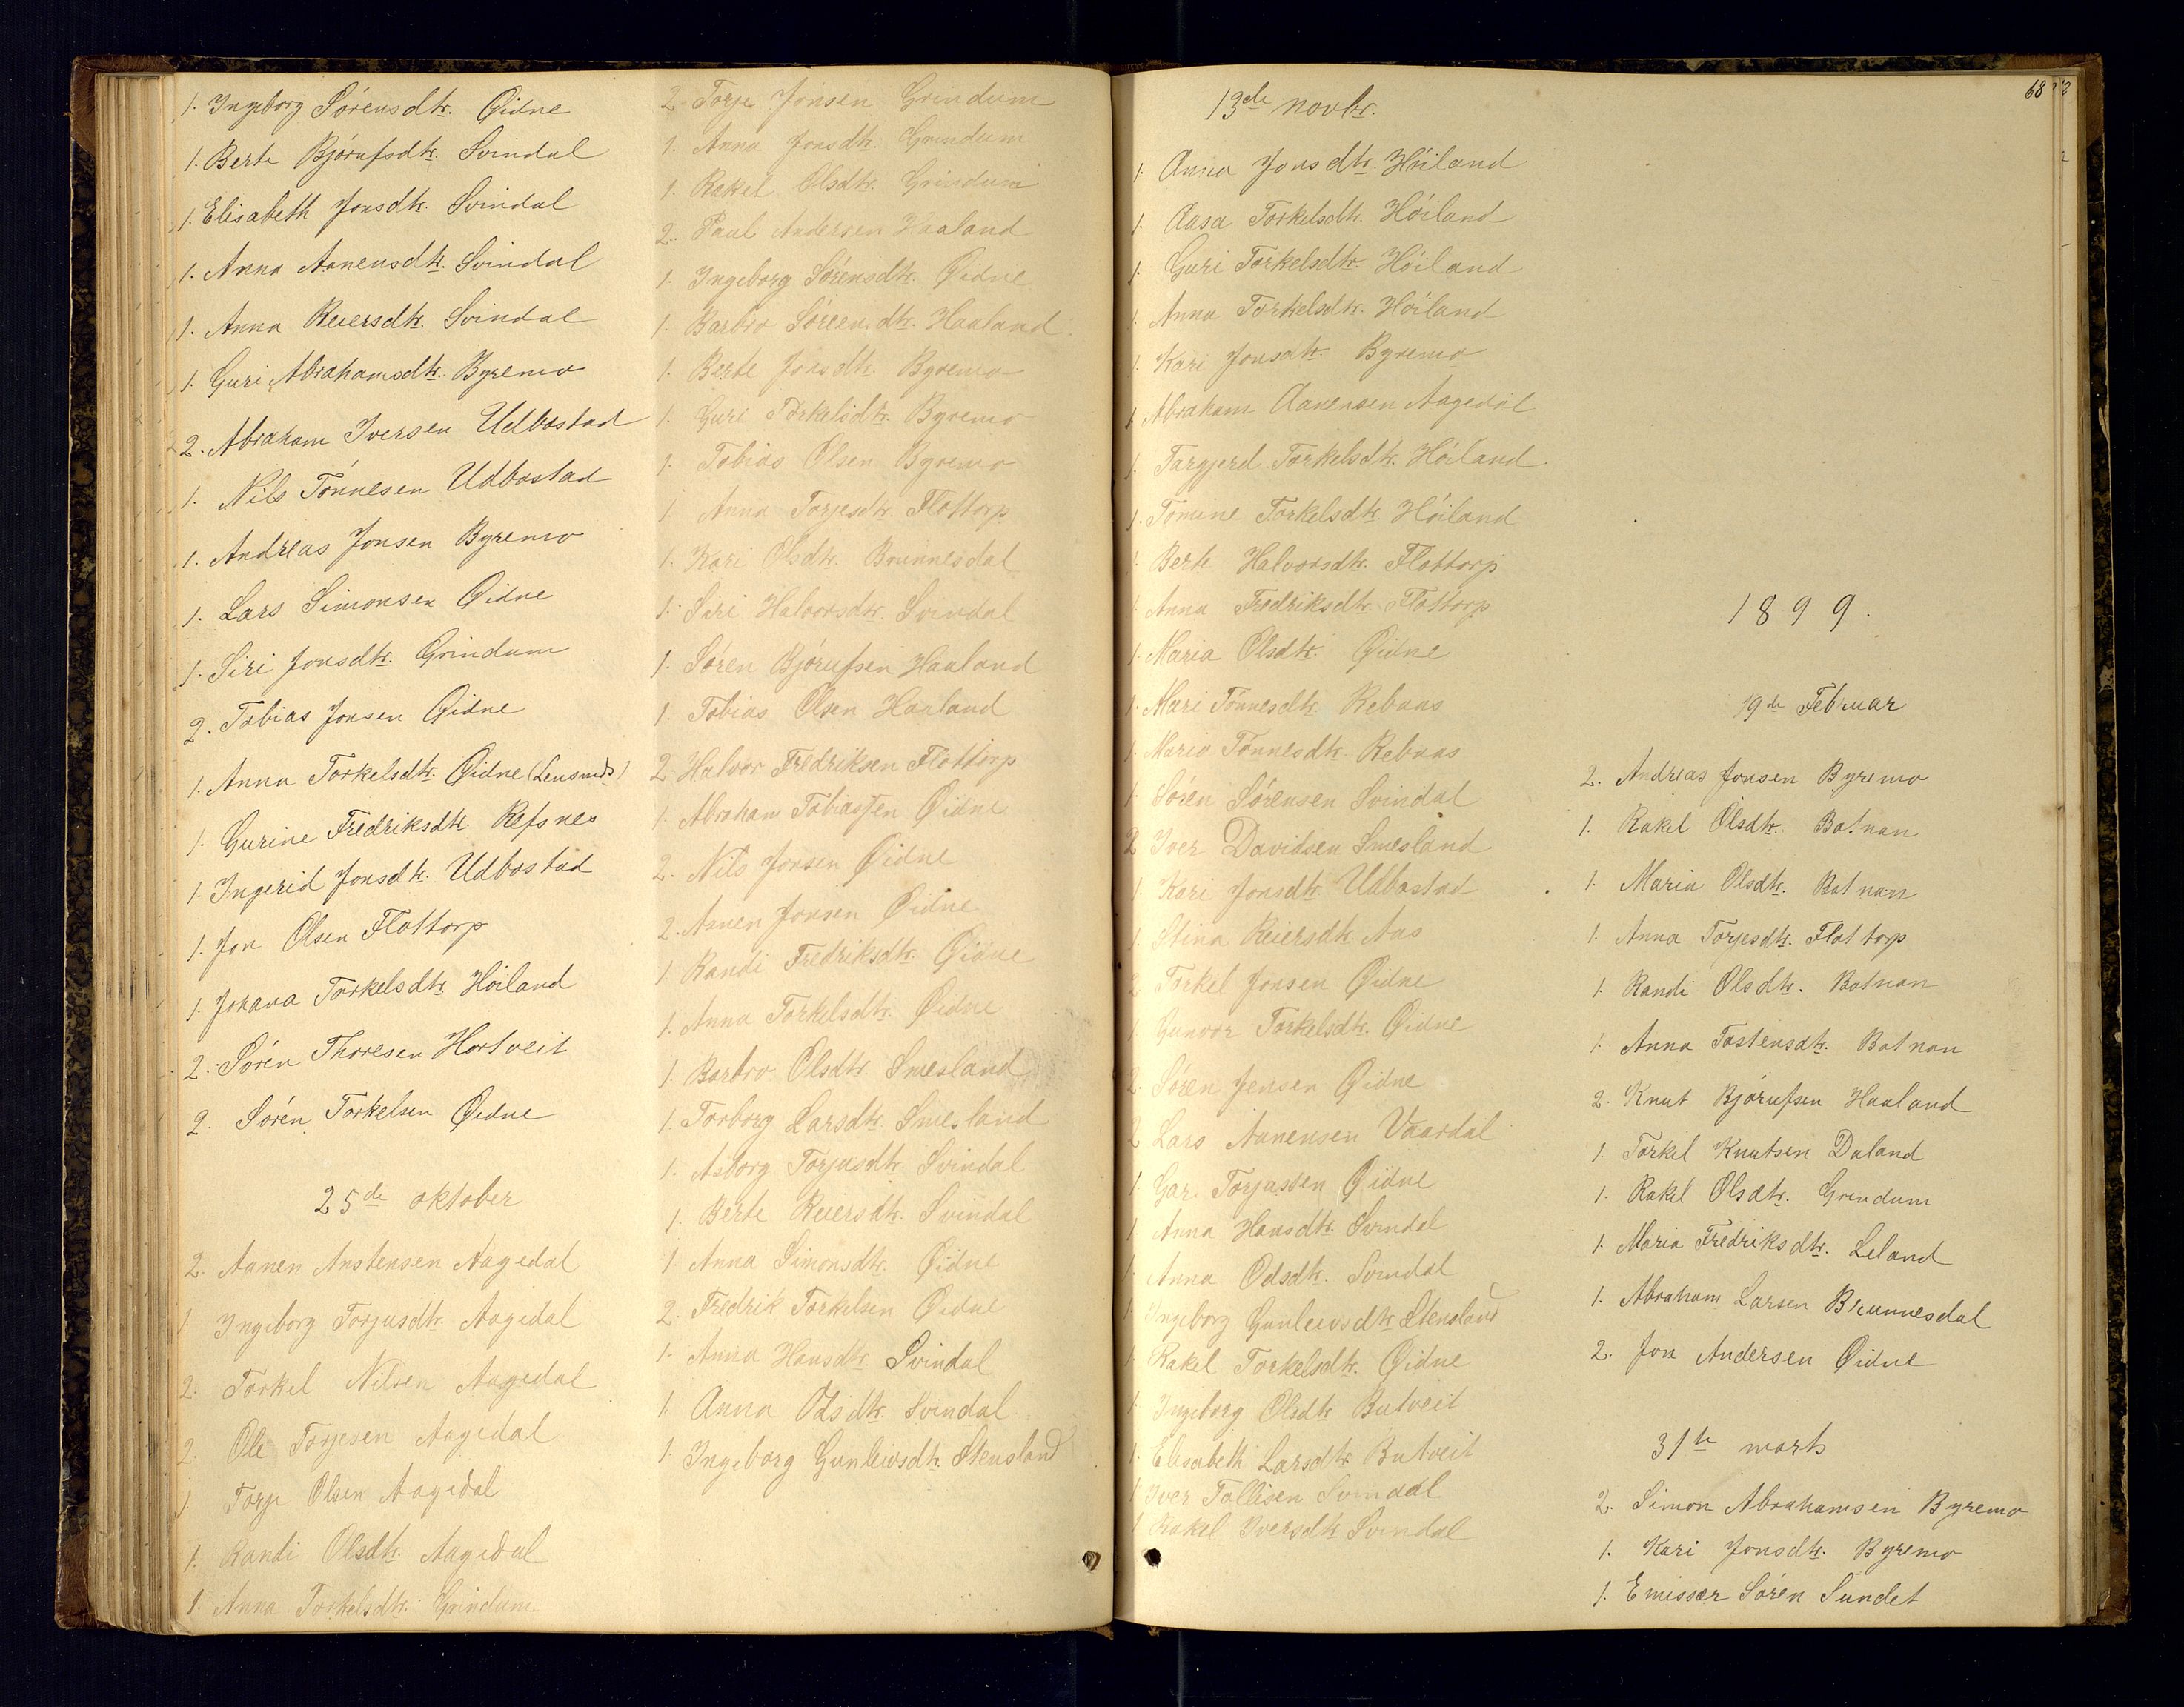 1. Ingeborg Sörensdtr. Öidne
1. Berte Björufsdtr. Svindal
1. Elisabeth Jonsdtr. Svindal
1. Anna Aanensdtr. Svindal
1. Anna Reiersdtr. Svindal
1. Guri Abrahamsdtr. Byremo
2. Abraham Iversen Udbostad
1. Nils Tönnesen Udbostad
1. Andreas Jonsen Byremo
1. Lars Simonsen Öidne
1. Siri Jonsdtr. Grindum
2. Tobias Jonsen Öidne
1. Anna Torkelsdtr. Öidne (Lensmds)
1. Gurine Fredriksdtr. Refsnes
1. Ingerid Jonsdtr. Udbostad
1. Jon Olsen Flottorp
1. Johana Torkelsdtr. Höiland
2. Sören Thoresen Hortveit
2. Sören Torkelsen Öidne
25de oktober
2. Aanen Anstensen Aagedal
1. Ingeborg Torjusdtr. Aagedal
2. Torkel Nilsen Aagedal
2. Ole Torjesen Aagedal
1. Torje Olsen Aagedal
1. Randi Olsdtr. Aagedal
1. Anna Torkelsdtr. Grindum
2. Torje Jonsen Grindum
1. Anna Jonsdtr. Grindum
1. Rakel Olsdtr. Grindum
2. Paul Andersen Haaland
1. Ingeborg Sörensdtr. Öidne
1. Barbro Sörensdtr. Haaland
1. Berte Jonsdtr. Byremo
1. Guri Torkelsdtr. Byremo
1. Tobias Olsen Byremo
1. Anna Torjesdtr. Flottorp
1. Kari Olsdtr. Brunnesdal
1. Siri Halvorsdtr. Svindal
1. Sören Björufsen Haaland
1. Tobias Olsen Haaland
2. Halvor Fredriksen Flottorp
1. Abraham Tobiassen Öidne
2. Nils Jonsen Öidne
2. Aanen Jonsen Öidne
1. Randi Fredriksdtr. Öidne
1. Anna Torkelsdtr. Öidne
1. Barbro Olsdtr. Smesland
1. Torborg Larsdtr. Smesland
1. Asborg Torjusdtr. Svindal
1. Berte Reiersdtr. Svindal
1. Anna Simonsdtr. Öidne
2. Fredrik Torkelsen Öidne
1. Anna Hansdtr. Svindal
1. Anna Odsdtr. Svindal
1. Ingeborg Gunleivsdtr. Stensland
68
13de novbr.
1. Anna Jonsdtr. Höiland
1. Aasa Torkelsdtr. Höiland
1. Guri Torkelsdtr. Höiland
1. Anna Torkelsdtr. Höiland
1. Kari Jonsdtr. Byremo
1. Abraham Aanensen Aagedal
1. Targjerd Torkelsdtr. Höiland
1. Tomine Torkelsdtr. Höiland
1. Berte Halvorsdtr. Flottorp
1. Anna Fredriksdtr. Flottorp
1. Maria Olsdtr. Öidne
1. Mari Tönnesdtr. Rebaas
1. Maria Tönnesdtr. Rebaas
1. Sören Sörensen Svindal
2 Iver Davidsen Smesland
1. Kari Jonsdtr. Udbostad
1. Stina Reiersdtr. Aas
2 Torkel Jonsen Öidne
1 Gunvor Torkelsdtr. Öidne
2. Sören Jensen Öidne
2 Lars Aanensen Vaardal
1 Torjussen Öidne
1 Anna Hansdtr. Svindal
1 Anna Odsdtr. Svindal
1 Ingeborg Gunleivsdtr. Stensland
1 Rakel Torkelsdtr. Öidne
1 Ingeborg Olsdtr. Butveit
1. Elisabeth Larsdtr. Butveit
1 Iver Tollisen Svindal
1 Rakel Iversdtr. Svindal
1899.
19de Februar
2. Andreas Jonsen Byremo
1. Rakel Olsdtr. Botnan
1. Maria Olsdtr. Botnan
1. Anna Torjesdtr. Flottorp
1. Randi Olsdtr. Botnan
1. Anna Tostensdtr. Botnan
2. Knut Björufsen Haaland
1. Torkel Knutsen Daland
1. Rakel Olsdtr. Grindum
1. Maria Fredriksdtr. Leland
1. Abraham Larsen Brunnesdal
2. Jon Andersen Öidne
31te marts
2. Simon Abrahamsen Byremo
1. Kari Jonsdtr. Byremo
1. Emissær Sören Sundet